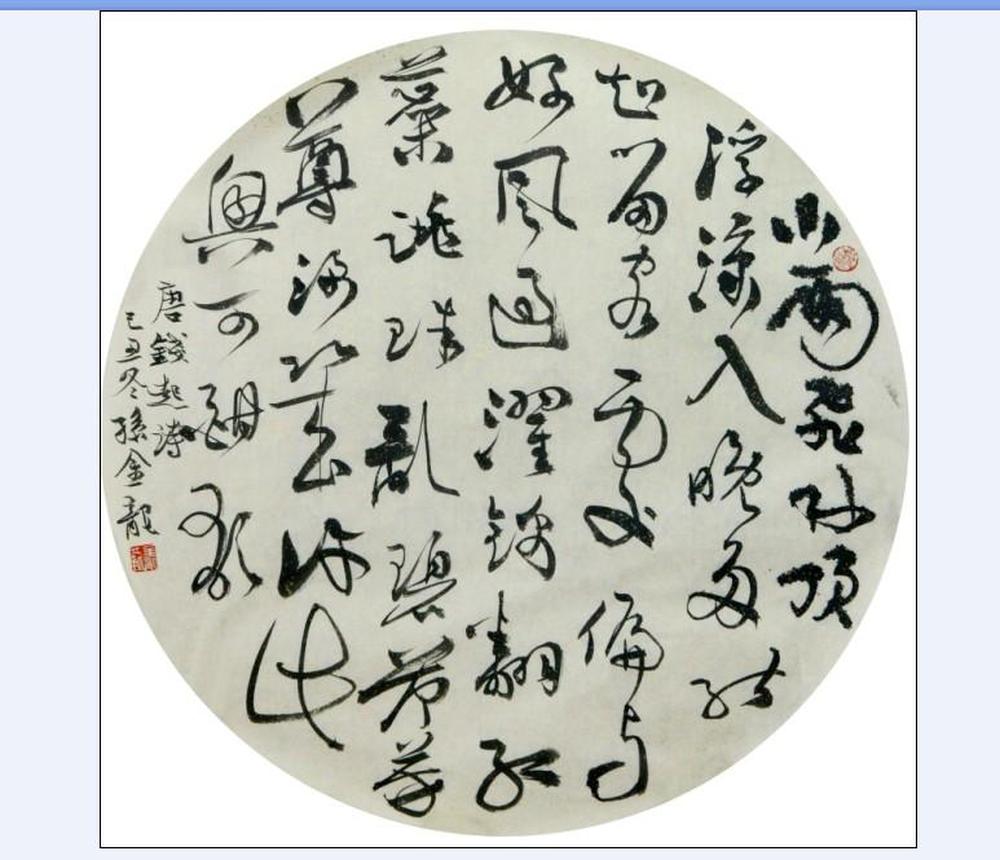 小雨飛林頂
浮涼入晚多能
知留客處偏與
好風過濯錦翻紅
蘂跳珠亂碧荷芳
尊深幾許此
興可酣歌
唐錢起詩
己丑冬孫金龍